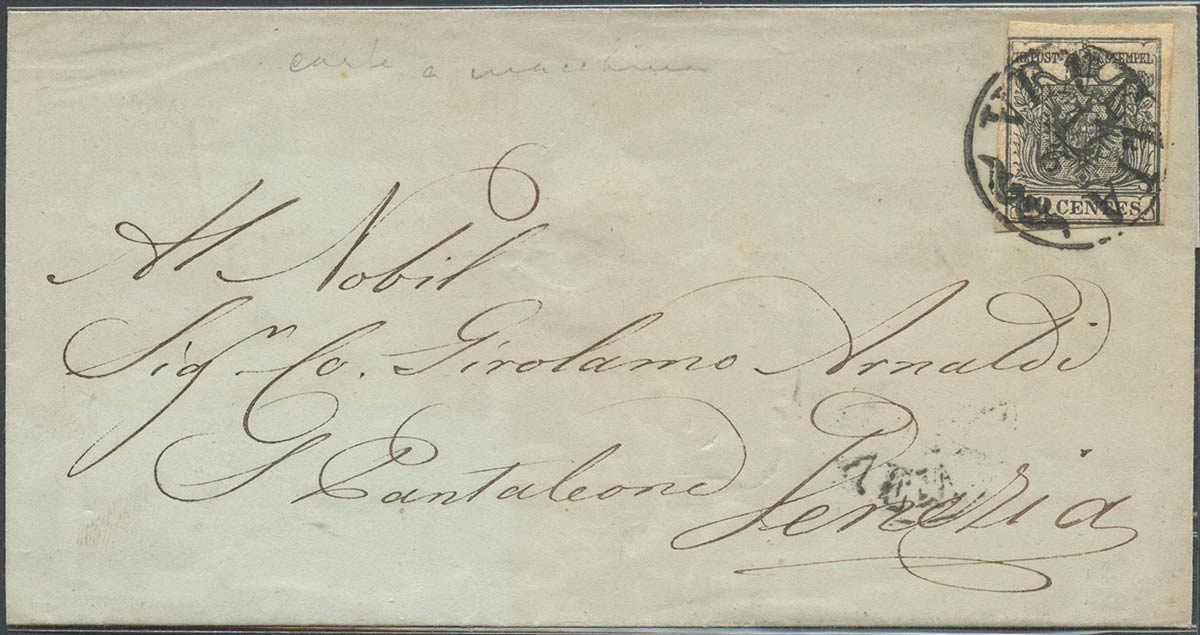 carta a macchina
KKPOST-STEMPEL
10 CENTES
VENEZIA
Al Nobil
Sign Co. Girolamo Arnaldi
S Pantaleone Venezia